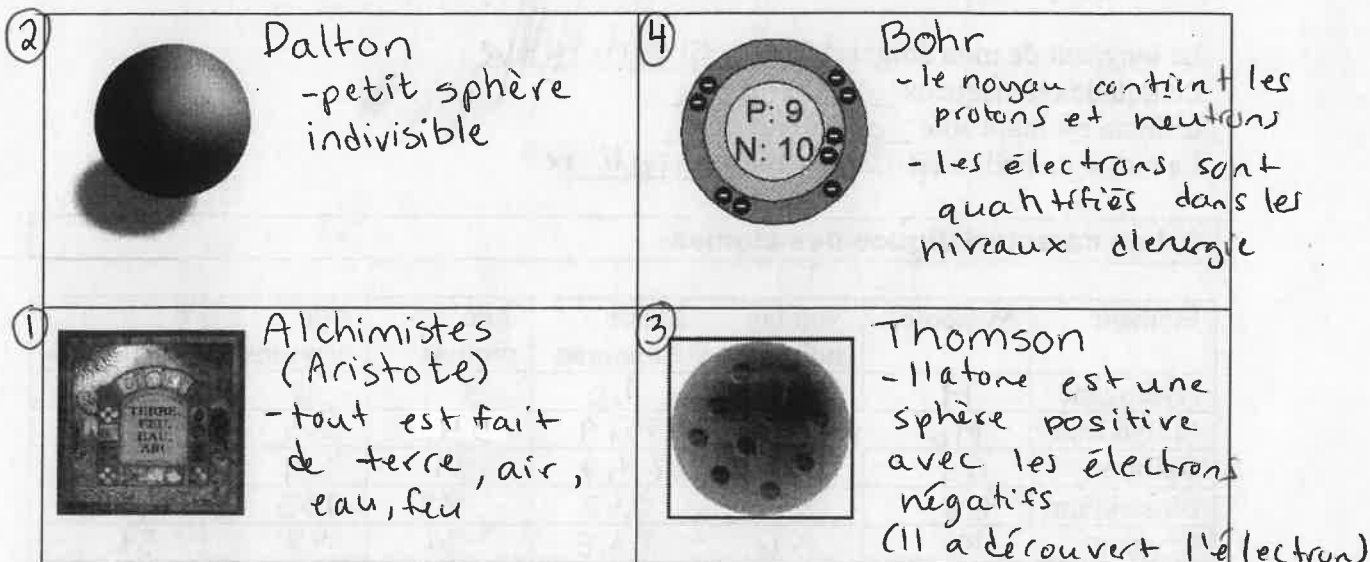 2
Dalton
-petit sphère
indivisible
4
P: 9
N: 10
Bohr
- le noyau contient les
protons et neutrons
- les électrons sont
quantifiés dans les
niveaux d'energie
1
TERRE,
FEU,
EAU,
AIR
Alchimistes
(Aristote)
- tout est fait
de terre, air,
eau, feu
3
Thomson
- l'atone est une
sphère positive
avec les électrons
négatifs
(Il a découvert l'électron)